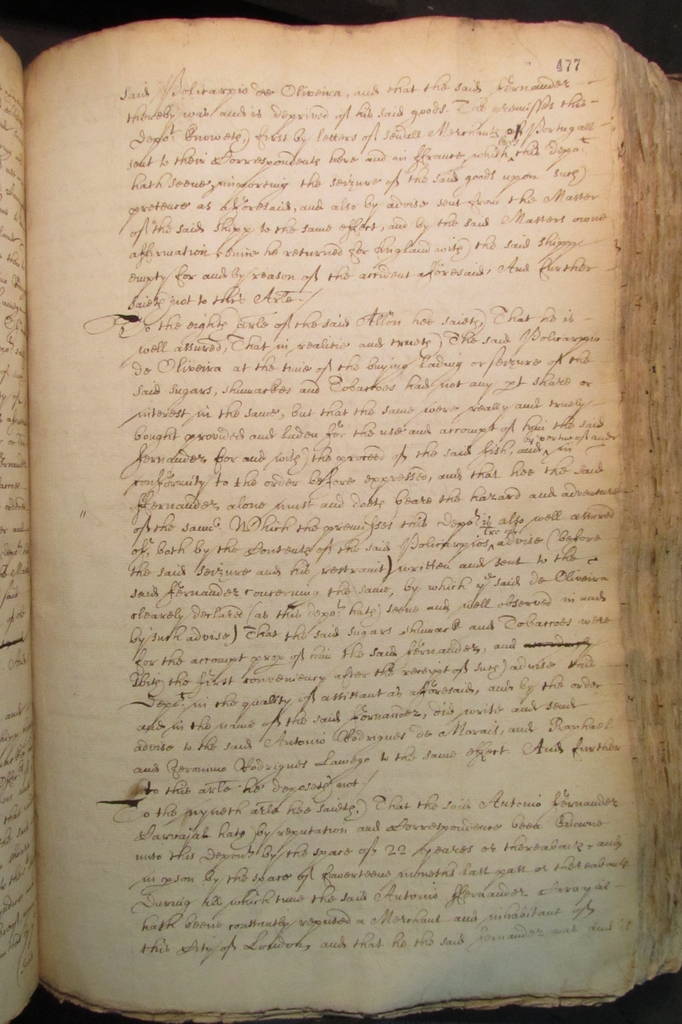 477
said Policarpio de Oliveira, and that the said Fernandez
thereby was and is deprived of his said goods. The premisses this
depot. knoweth first by letters of severall Merchants of Portugall
sent to their Correspondents here and in France, which this depot.
hath seene, importing the seizure of the said goods upon such
pretence as aforesaid, and also by advise sent from the Master
of the said shipp to the same effect, and by the said Masters owne
affirmation since he returned for England with the said shipp
empty for and by reason of the accident aforesaid. And further
saieth not to this Arle.
To the eighth arle of the said Allon hee saieth, That he is
well assured, That in realitie and trueth The said Policarpio
de Oliveira at the time of the buying lading or seizure of the
said sugars, shumackes and Tobaccoes had not any pt share or
interest in the same, but that the same were really and truely
bought provided and laden for the use and accompt of him the said
Fernandez for and with the proceed of the said fish, and in
conformity to the order before expressed, and that hee the said
Ffernandez alone must and doeth beare the hazard and adventure
of the same. Which the premisses this depot. is also well assured
of, both by the Contents of the said Policarpios advise (before
the said seizure and his restraint) written and sent to the
said Fernandez concerning the same, by which ye said de Oliveira
clearely declared (as this depot. hath seene and well observed in and
by such advise) That the said sugars shumack and Tobaccoes were
for the accompt prop of him the said Fernandez, and
with the first conveniency after the receipt of such advise this
Depot. in the quality of assistant as aforesaid, and by the order
and in the name of the said Fernandez, did write and send
advise to the said Antonio Rodrigues de Morais, and Raphael
and Jeronimo Rodrigues Lamego to the same effect. And further
to this arle he deposeth not.
To the nyneth arle hee saieth, That the said Antonio Fernandez
Carvajal hath by reputation and Correspondence been knowne
unto this Deponent by the space of 22 yeares or thereabouts, and
in pson by the space of fowerteene moneths last past or thereabouts
During all which time the said Antonio Ffernandez Carvajal
hath beene constantly reputed a Merchant and inhabitant of
this City of London, and that he the said Fernandez was and is